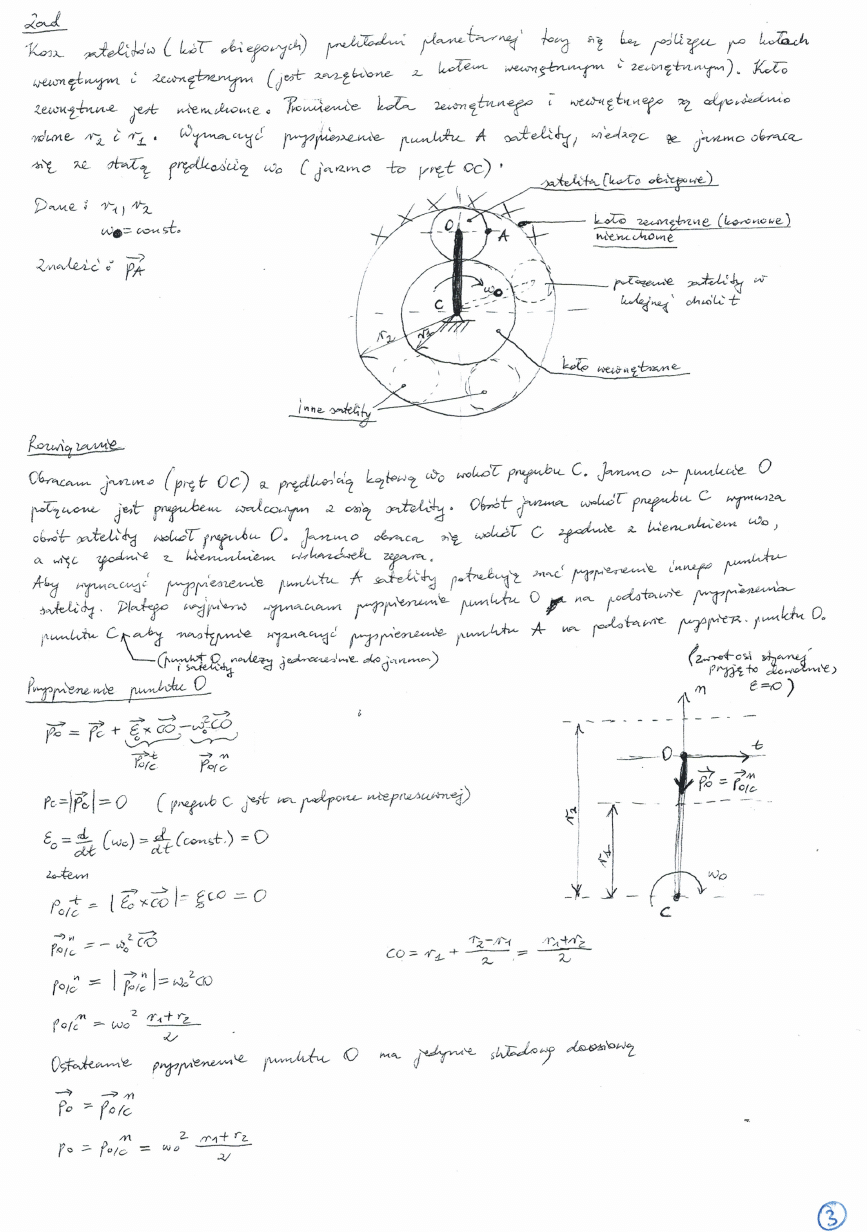 Zad
Kosz satelitów (kół obiegowych) przekładni planetarnej toczy się bez poślizgu po kołach
wewnętrznym i zewnętrznym (jest zazębione z kołem wewnętrznym i zewnętrznym). Koło
zewnętrzne jest nieruchome. Promienie koła zewnętrznego i wewnętrznego są odpowiednio
równe r2 i r1. Wyznaczyć przyspieszenie punktu A satelity, wiedząc że jarzmo obraca
się ze stałą prędkością ω0 (jarzmo to pręt OC).
Dane: r1, r2
ω0 = const.
Znaleźć: p⃗A
satelita (koło obiegowe)
koło zewnętrzne (koronowe)
nieruchome
położenie satelity w
kolejnej chwili t
koło wewnętrzne
inne satelity
O
A
C
ω0
r2
r1
Rozwiązanie
Obracam jarzmo (pręt OC) z prędkością kątową ω0 wokół przegubu C. Jarzmo w punkcie O
połączone jest przegubem walcowym z osią satelity. Obrót jarzma wokół przegubu C wymusza
obrót satelity wokół przegubu O. Jarzmo obraca się wokół C zgodnie z kierunkiem ω0,
a więc zgodnie z kierunkiem wskazówek zegara.
Aby wyznaczyć przyspieszenie punktu A satelity potrzebuję znać przyspieszenie innego punktu
satelity. Dlatego najpierw wyznaczam przyspieszenie punktu O na podstawie przyspieszenia
punktu C, aby następnie wyznaczyć przyspieszenie punktu A na podstawie przyspiesz. punktu O.
(punkt O należy jednocześnie do jarzma)
i satelity
(zwrot osi stycznej
przyjęto dowolnie,
ε=0)
Przyspieszenie punktu O
p⃗O = p⃗C + ε⃗0 × CO⃗ - ω0² CO⃗
p⃗O/C^t p⃗O/C^n
pC = |p⃗C| = 0 (przegub C jest na podporze nieprzesuwnej)
ε0 = d/dt (ω0) = d/dt (const.) = 0
zatem
pO/C^t = |ε⃗0 × CO⃗| = ε0 CO = 0
p⃗O/C^n = - ω0² CO⃗
CO = r1 + (r2-r1)/2 = (r1+r2)/2
pO/C^n = |p⃗O/C^n| = ω0² CO
pO/C^n = ω0² (r1+r2)/2
Ostatecznie przyspieszenie punktu O ma jedynie składową doosiową
p⃗O = p⃗O/C^n
pO = pO/C^n = ω0² (r1+r2)/2
n
O
t
p⃗O = p⃗O/C^n
r2
r1
ω0
C
3